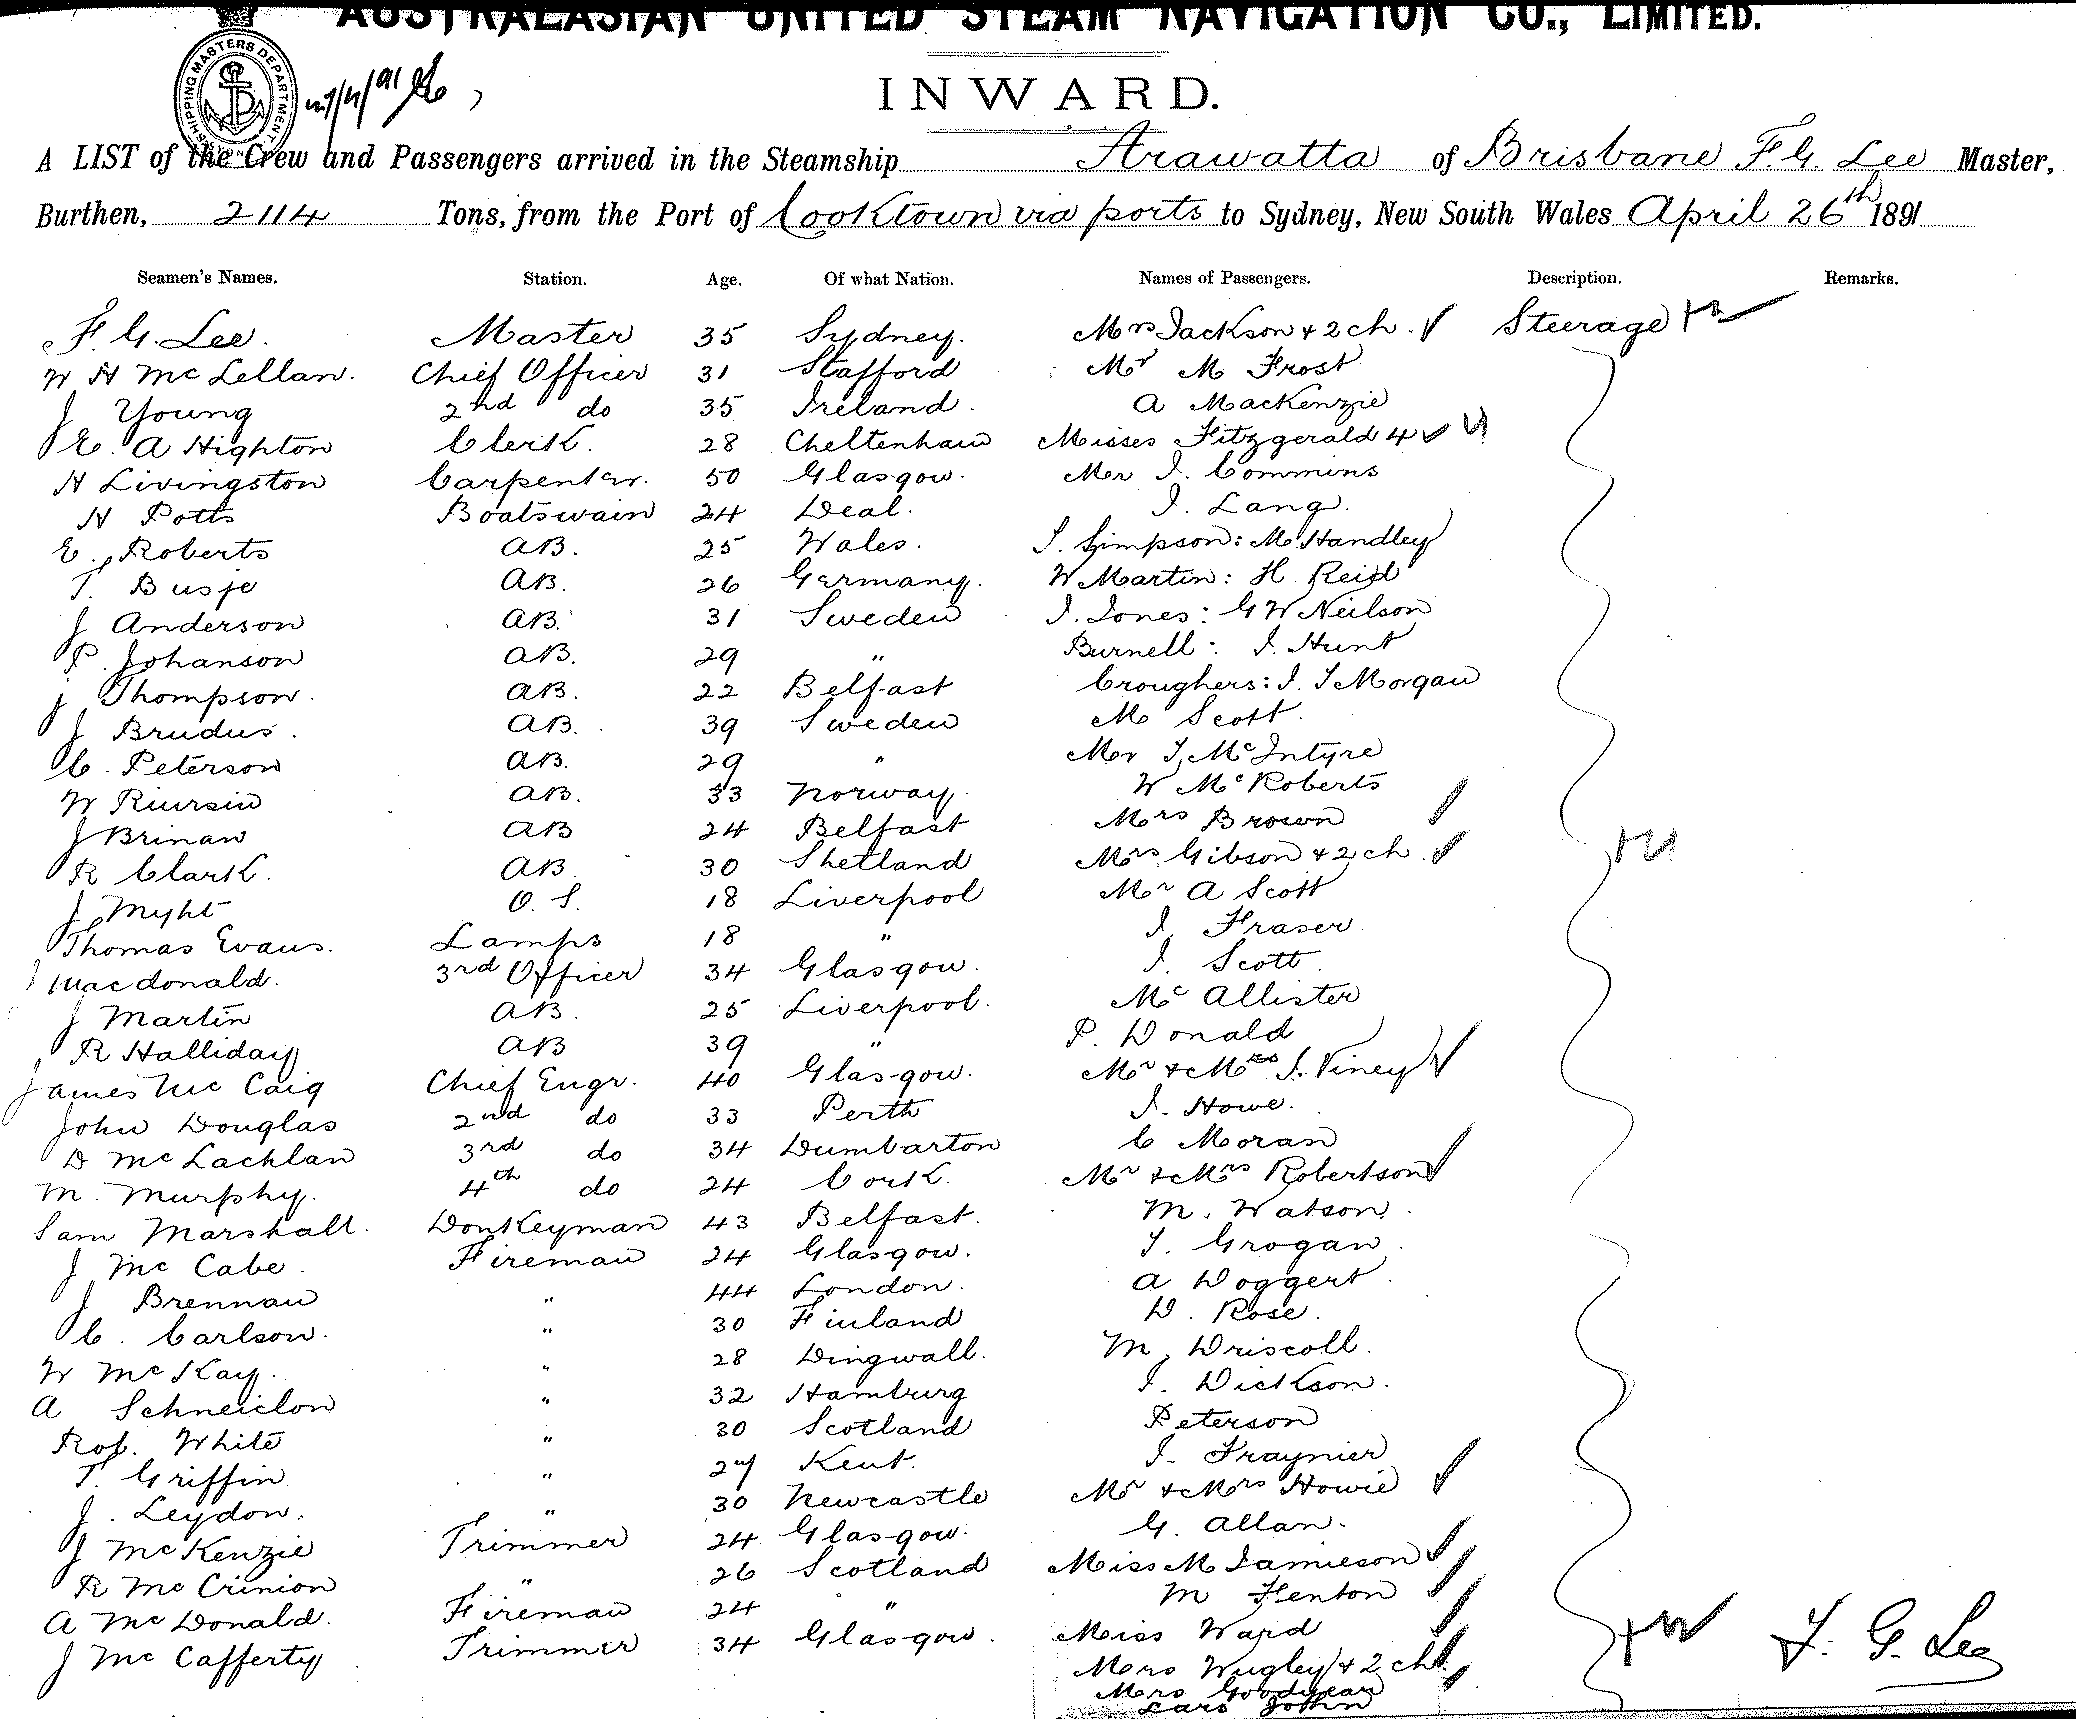 AUSTRALASIAN UNITED STEAM NAVIGATION CO., LIMITED.
SHIPPING MASTERS DEPARTMENT
INWARD.
A LIST of the Crew and Passengers arrived in the Steamship Arawatta of Brisbane F. G. Lee Master,
Burthen, 2114 Tons, from the Port of Cooktown via ports to Sydney, New South Wales April 26th 1891
Seamen's Names. Station. Age. Of what Nation. Names of Passengers. Description. Remarks.
F. G. Lee. Master 35 Sydney. Mrs Jackson + 2 ch. Steerage
W H McLellan. Chief Officer 31 Stafford Mr M Frost
J Young 2nd do 35 Ireland. A MacKenzie
E. A Highton Clerk. 28 Cheltenham Misses Fitzgerald 4
H Livingston Carpenter. 50 Glasgow. Mr J. Commins
H Potts Boatswain 24 Deal. J. Lang.
E. Roberts AB. 25 Wales. S. Simpson: M Handley
T. Busje AB. 26 Germany. W Martin: H. Reid
J Anderson AB. 31 Sweden J. Jones: G W Neilson
P. Johanson AB. 29 " Burnell: J. Hunt
J Thompson. AB. 22 Belfast Croughers: J. T Morgan
J Brudus. AB. 39 Sweden M Scott.
C. Peterson AB. 29 " Mr T. McIntyre
W Riursin AB. 33 Norway. W McRoberts
J Brinan AB 24 Belfast Mrs Brown
R Clark. AB 30 Shetland Mrs Gibson + 2 ch.
J Myht O. S. 18 Liverpool Mr A Scott
Thomas Evans. Lamps 18 " J. Fraser
J Macdonald. 3rd Officer 34 Glasgow. J. Scott
J Martin AB. 25 Liverpool. McAllister
R Halliday AB 39 " P. Donald
James McCaig Chief Engr. 40 Glasgow. Mr & Mrs J. Viney
John Douglas 2nd do 33 Perth J. Howe.
D McLachlan 3rd do 34 Dumbarton C Moran
M. Murphy. 4th do 24 Cork. Mr & Mrs Robertson
Sam Marshall. Donkeyman 43 Belfast. M. Watson.
J McCabe. Fireman 24 Glasgow. T. Grogan.
J Brennan " 44 London. A Doggert.
C. Carlson. " 30 Finland D. Rose.
W McKay. " 28 Dingwall. M. Driscoll.
A Schneidon " 32 Hamburg J. Dickson.
Rob. White " 30 Scotland Peterson
T. Griffin " 27 Kent. J. Fraynier
J. Leydon. " 30 Newcastle Mr & Mrs Howie
J McKenzie Trimmer 24 Glasgow. G. Allan.
R McCrinion " 26 Scotland Miss M Jamieson
A McDonald. Fireman 24 " M Fenton
J McCafferty Trimmer 34 Glasgow. Miss Ward
Mrs Wugley + 2 ch. F. G. Lee
Mrs Goodyear
Lars John